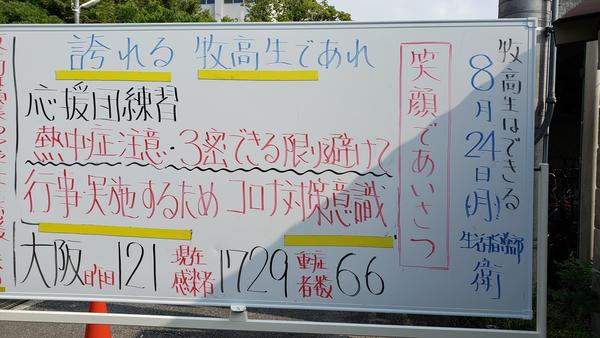 牧高生はできる
8月24日(月)
生活指導部
衛
笑顔であいさつ
誇れる 牧高生であれ
応援団練習
熱中症注意・3密できる限り避けて
行事実施するため コロナ対策意識
大阪昨日121 現在感染者1729 重症者数66